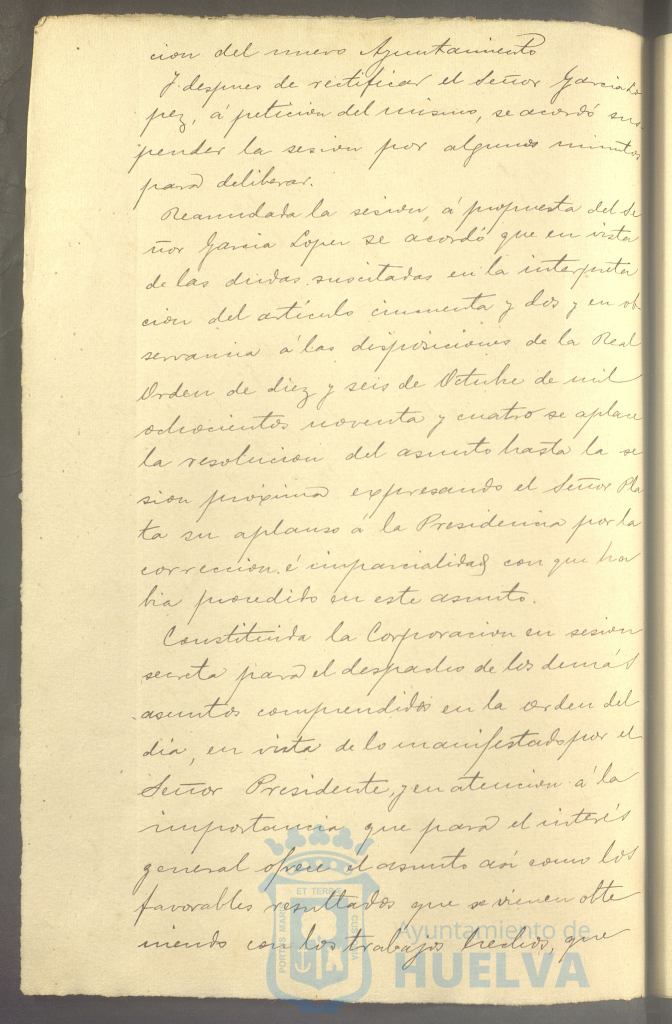 cion del nuevo Ayuntamiento
Y despues de rectificar el Señor Garcia Lo
pez, á peticion del mismo, se acordó sus
pender la sesion por algunos minutos
para deliberar.
Reanudada la sesion, á propuesta del Se
ñor Garcia Lopez se acordó que en vista
de las dudas suscitadas en la interpreta
cion del artículo cincuenta y dos y en ob
servancia á las disposiciones de la Real
Orden de diez y seis de Octubre de mil
ochocientos noventa y cuatro se aplace
la resolucion del asunto hasta la se
sion próxima expresando el Señor Pla
ta su aplauso á la Presidencia por la
correccion é imparcialidad con que ha
bia procedido en este asunto.
Constituida la Corporacion en sesion
secreta para el despacho de los demás
asuntos comprendidos en la orden del
dia, en vista de lo manifestado por el
Señor Presidente, y en atencion á la
importancia que para el interés
general ofrece el asunto asi como los
favorables resultados que se vienen obte
niendo con los trabajos hechos, que
PORTUS MARIS
ET TERRE
CUSTODIA
Ayuntamiento de
HUELVA